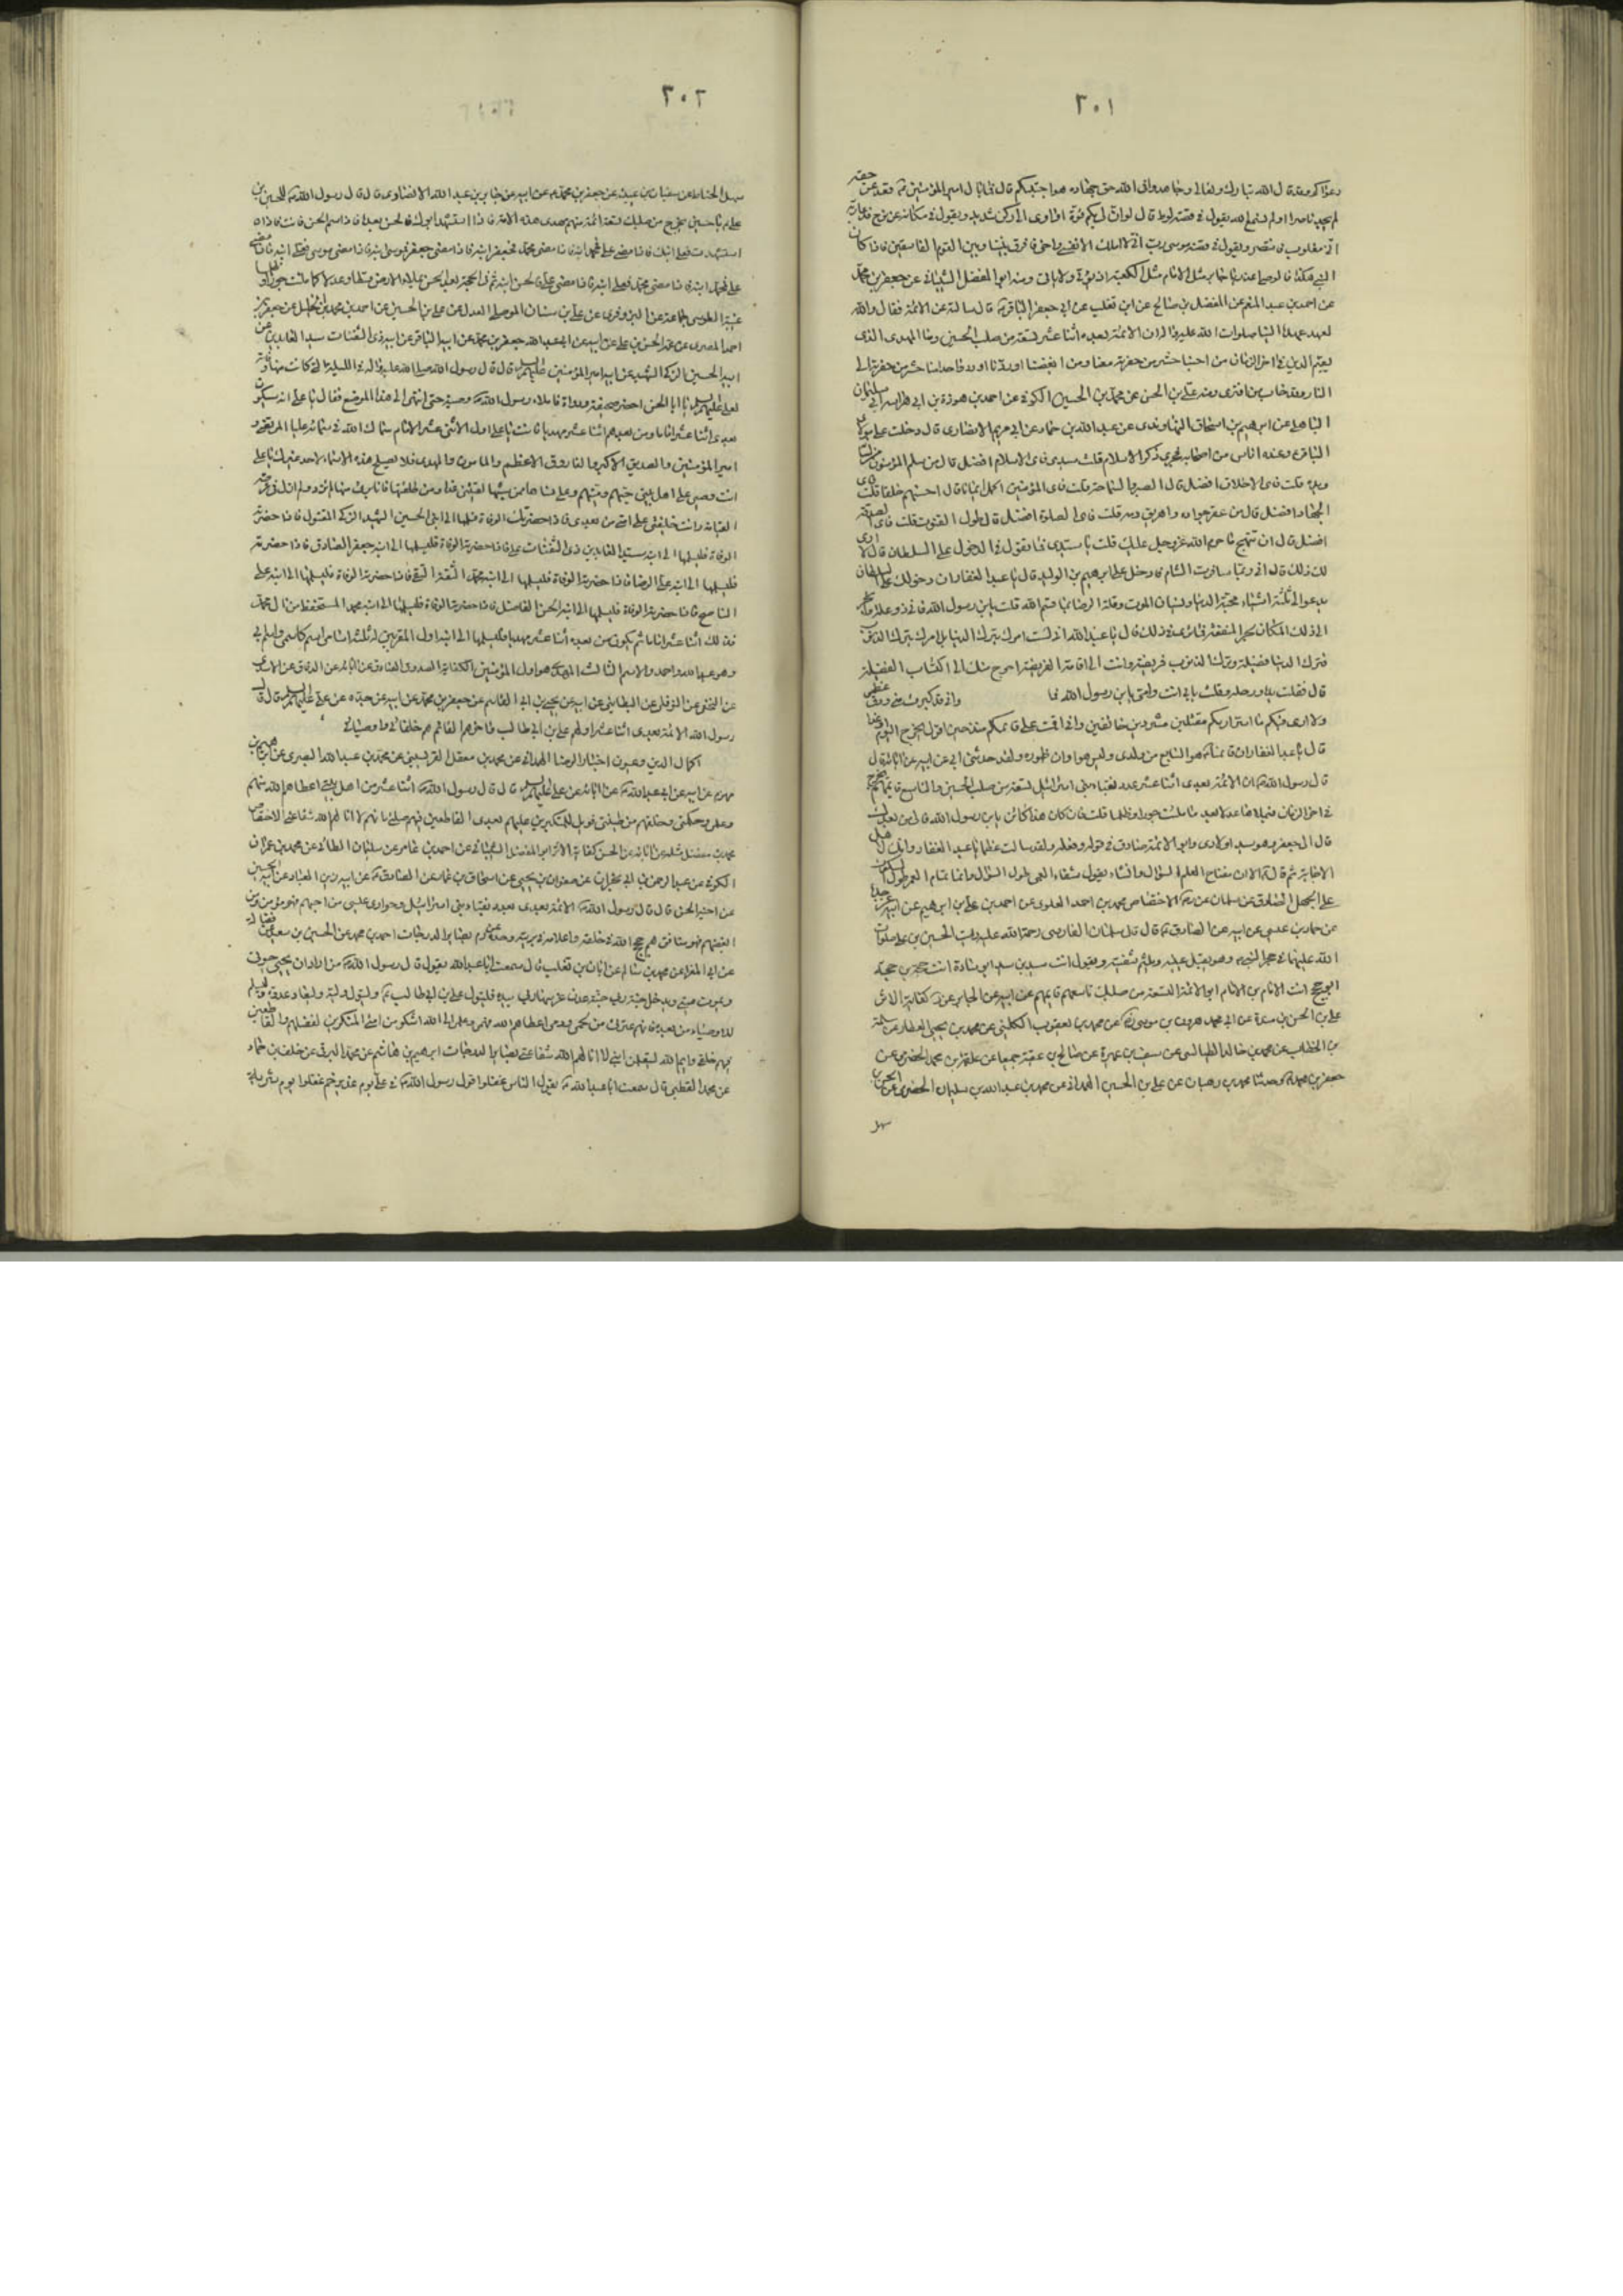 ٢٠١
وعزا كره وقد قال الله تبارك وتعالى وجاهدوا في الله حق جهاده هو اجتبيكم قال فما بال امير المؤمنين قعد عن حقه
لم يجد ناصرا اولم تسمع الله يقول في قصة لوط قال لو ان لي بكم قوة او اوي الى ركن شديد ويقول في حكاية عن نوح فدعا ربه
اني مغلوب فانتصر ويقول في قصة موسى رب اني لا املك الا نفسي واخي فافرق بيننا وبين القوم الفاسقين فاذا كان
النبي هكذا فالوصي اعذر يا جابر مثل الامام مثل الكعبة اذ يؤتى ولا ياتي ومنه ابو المفضل الشيباني عن جعفر بن محمد
عن احمد بن عبد المنعم عن المفضل بن صالح عن ابان بن تغلب عن ابي جعفر الباقر قال سالته عن الائمة فقال والله
لعهد عهده الينا رسول الله صلوات الله عليه واله ان الائمة بعده اثنا عشر تسعة من صلب الحسين ومنا المهدي الذي
يقيم الدين في اخر الزمان من احبنا حشر من حفرته معنا ومن ابغضنا او ردنا او رد واحدا منا حشر من حفرته الى
النار وقد خاب من افترى ومنه علي بن الحسن عن محمد بن الحسين الكوفي عن احمد بن هوذة بن ابي هراسة ابي سليمان
الباهلي عن ابرهيم بن اسحاق النهاوندي عن عبد الله بن حماد عن ابي مريم الانصاري قال دخلت على مولاي
الباقر وعنده اناس من اصحابه فجرى ذكر الاسلام قلت سيدي فاي الاسلام افضل قال من سلم المؤمنون من لسانه
ويده قلت فاي الاخلاق افضل قال الصبر والسماحة قلت فاي المؤمنين اكمل ايمانا قال احسنهم خلقا قلت فاي
الجهاد افضل قال من عقر جواده واهريق دمه قلت فاي الصلوة افضل قال طول القنوت قلت فاي الصدقة
افضل قال ان تهجر ما حرم الله عز وجل عليك قلت يا سيدي فما تقول في الدخول على السلطان قال لا ارى
لك ذلك قال اني ربما سافرت الشام فادخل على ابرهيم بن الوليد قال يا عبد الغفار ان دخولك على السلطان
يدعو الى ثلثة اشياء محبة الدنيا ونسيان الموت وقلة الرضا بما قسم الله قلت يابن رسول الله فاني ذو عيلة واتجر
الى ذلك المكان لجر المنفعة فما ترى في ذلك قال يا عبد الله اني لست امرك بترك الدنيا بل امرك بترك الذنوب
فترك الدنيا فضيلة وترك الذنوب فريضة وانت الى اقامة الفريضة احوج منك الى اكتساب الفضيلة
قال فقبلت يده ورجله وقلت بابي انت وامي يابن رسول الله فما واني قد كبرت سني ودق عظمي
ولا ارى فيكم ما اسر به اراكم مقتلين مشردين خائفين واني اقمت على قائمكم منذ حين اقول يخرج اليوم او غدا
قال يا عبد الغفار ان قائمنا هو السابع من ولدي وليس هو اوان ظهوره ولقد حدثني ابي عن ابيه عن ابائه قال
قال رسول الله ان الائمة بعدي اثنا عشر عدد نقباء بني اسرائيل تسعة من صلب الحسين والتاسع قائمهم يخرج
في اخر الزمان فيملاها عدلا بعد ما ملئت جورا وظلما قلت فان كان هذا كائن يابن رسول الله فالى من بعدك
قال الى جعفر وهو سيد اولادي وابو الائمة صادق في قوله وفعله ولقد سالت عظيما يا عبد الغفار وانك لاهل
الاجابة ثم قال الا ان مفتاح العلم السؤال وانشاء يقول شفاء العمى طول السؤال وانما تمام العمى طول السكوت
على الجهل الصادق عن سلمان الاختصاص محمد بن احمد العلوي عن احمد بن علي بن ابرهيم عن ابيه عن جده
عن حماد بن عيسى عن ابيه عن الصادق قال قال سلمان الفارسي رحمة الله عليه رايت الحسين بن علي صلوات
الله عليهما في حجر النبي وهو يقبل عينيه ويلثم شفتيه ويقول انت سيد بن سيد ابو سادة انت حجة بن حجة
ابو حجج انت الامام بن الامام ابو الائمة التسعة من صلبك تاسعهم قائمهم كفاية الاثر
علي بن الحسن بن مندة عن ابي محمد هرون بن موسى عن محمد بن يعقوب الكليني عن محمد بن يحيى العطار عن سلمة
بن الخطاب عن محمد بن خالد الطيالسي عن سيف بن عميرة عن صالح بن عقبة جميعا عن علقمة بن محمد الحضرمي عن
جعفر بن محمد وحدثنا محمد بن وهبان عن علي بن الحسين الهمداني عن محمد بن عبد الله بن سليمان الحضرمي عن الحسن بن
سهل
٢٠٢
سهل الخياط عن سفيان بن عيينة عن جعفر بن محمد عن ابيه عن جابر بن عبد الله الانصاري قال قال رسول الله للحسين بن
علي يا حسين يخرج من صلبك تسعة ائمة منهم مهدي هذه الامة فاذا استشهد ابوك فالحسن بعده فاذا سم الحسن فانت فاذا
استشهدت فعلي ابنك فاذا مضى علي فمحمد ابنه فاذا مضى محمد فجعفر ابنه فاذا مضى جعفر فموسى ابنه فاذا مضى موسى فعلي ابنه فاذا مضى
علي فمحمد ابنه فاذا مضى محمد فعلي ابنه فاذا مضى علي فالحسن ابنه ثم الحجة بعد الحسن يملاء الارض قسطا وعدلا كما ملئت جورا وظلما
غيبة الطوسي جماعة عن البزوفري عن علي بن سنان الموصلي العدل عن علي بن الحسين عن احمد بن محمد بن الخليل عن جعفر بن
احمد المصري عن عمه الحسن بن علي عن ابيه عن ابي عبد الله جعفر بن محمد عن ابيه الباقر عن ابيه ذي الثفنات سيد العابدين عن
ابيه الحسين الزكي الشهيد عن ابيه امير المؤمنين عليهم السلام قال قال رسول الله صلى الله عليه واله في الليلة التي كانت فيها وفاته
لعلي عليه السلام يا ابا الحسن احضر صحيفة ودواة فاملاء رسول الله وصيته حتى انتهى الى هذا الموضع فقال يا علي انه سيكون
بعدي اثنا عشر اماما ومن بعدهم اثنا عشر مهديا فانت يا علي اول الاثنى عشر الامام سماك الله في سمائه عليا المرتضى و
امير المؤمنين والصديق الاكبر والفاروق الاعظم والمامون والمهدي فلا تصلح هذه الاسماء لاحد غيرك يا علي
انت وصيي على اهل بيتي حيهم وميتهم وعلى نسائي فمن ثبتها لقيتني غدا ومن طلقتها فانا برئ منها لم ترني ولم ارها في عرصة
القيامة وانت خليفتي على امتي من بعدي فاذا حضرتك الوفاة فسلمها الى ابني الحسين الشهيد الزكي المقتول فاذا حضرته
الوفاة فليسلمها الى ابنه سيد العابدين ذي الثفنات علي فاذا حضرته الوفاة فليسلمها الى ابنه جعفر الصادق فاذا حضرته
فليسلمها الى ابنه علي الرضا فاذا حضرته الوفاة فليسلمها الى ابنه محمد الثقة التقي فاذا حضرته الوفاة فليسلمها الى ابنه علي
الناصح فاذا حضرته الوفاة فليسلمها الى ابنه الحسن الفاضل فاذا حضرته الوفاة فليسلمها الى ابنه محمد المستحفظ من ال محمد
فذلك اثنا عشر اماما ثم يكون من بعده اثنا عشر مهديا فليسلمها الى ابنه اول المقربين له ثلثة اسامي اسم كاسمي واسم ابي
وهو عبد الله واحمد والاسم الثالث المهدي هو اول المؤمنين الصدوق عن الدقاق عن الاسدي
عن النخعي عن النوفلي عن البطائني عن ابيه عن يحيى بن ابي القاسم عن جعفر بن محمد عن ابيه عن جده عن علي عليهم السلام قال قال
رسول الله الائمة بعدي اثنا عشر اولهم علي بن ابي طالب واخرهم القائم هم خلفائي واوصيائي
اكمال الدين وعيون اخبار الرضا الهمداني عن محمد بن معقل القرميسيني عن محمد بن عبد الله البصري عن ابراهيم بن
مهزم عن ابيه عن ابي عبد الله عن ابائه عن علي عليهم السلام قال قال رسول الله اثنا عشر من اهل بيتي اعطاهم الله فهمي
وعلمي وحكمتي وخلقهم من طينتي فويل للمتكبرين عليهم بعدي القاطعين فيهم صلتي ما لهم لا انا لهم الله شفاعتي الاختصاص
محمد بن معقل مثله كفاية الاثر ابو المفضل الشيباني عن احمد بن عامر عن سليمان الطائي عن محمد بن عمران
الكوفي عن عبد الرحمن بن ابي نجران عن صفوان بن يحيى عن اسحاق بن عمار عن الصادق عن ابيه عن ابيه زين العباد عن ابيه الحسين
عن اخيه الحسن قال قال رسول الله الائمة بعدي بعدد نقباء بني اسرائيل وحواري عيسى من احبهم فهو مؤمن ومن
ابغضهم فهو منافق هم حجج الله في خلقه واعلامه في بريته بصاير الدرجات احمد بن محمد عن الحسين بن سعيد عن فضالة
عن ابي المغرا عن محمد بن سالم عن ابان بن تغلب قال سمعت ابا عبد الله يقول قال رسول الله من اراد ان يحيى حيوتي
ويموت ميتتي ويدخل جنة ربي جنة عدن غرسها ربي بيده فليتول علي بن ابي طالب وليتول وليه وليعاد عدوه وليسلم
للاوصياء من بعده فانهم عترتي من لحمي ودمي اعطاهم الله فهمي وعلمي الى الله اشكو من امتي المنكرين لفضلهم والقاطعين
فيهم صلتي وايم الله ليقتلن ابني لا انا لهم الله شفاعتي بصاير الدرجات ابرهيم بن هاشم عن محمد البرقي عن خلف بن حماد
عن محمد القطبي قال سمعت ابا عبد الله يقول الناس غفلوا قول رسول الله في علي يوم غدير خم كما غفلوا يوم مشربة